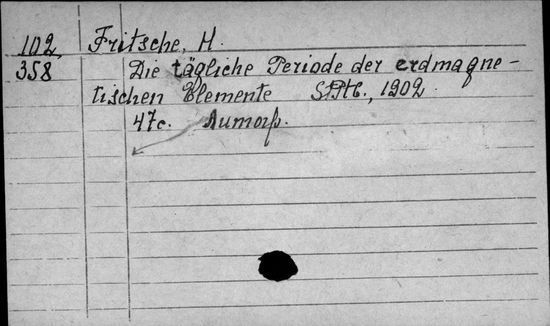 102 Fritsche, H.
358 Die tägliche Periode der erdmagne-
tischen Elemente St.Ptb., 1902.
47c.